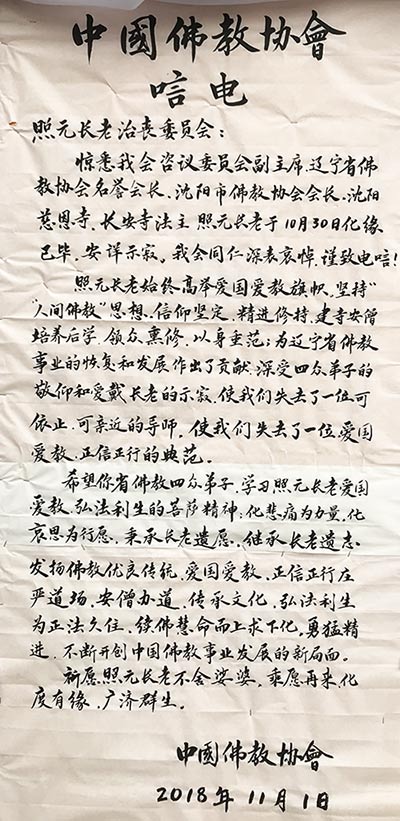 中國佛教协會
唁电
照元长老治丧委员会：
惊悉我会咨议委员会副主席、辽宁省佛
教协会名誉会长、沈阳市佛教协会会长、沈阳
慈恩寺、长安寺法主照元长老于10月30日化缘
已毕，安详示寂。我会同仁深表哀悼，谨致电唁！
照元长老始终高举爱国爱教旗帜，坚持"
"人间佛教"思想，信仰坚定，精进修持，建寺安僧
培养后学，领众熏修，以身垂范；为辽宁省佛教
事业的恢复和发展作出了贡献，深受四众弟子的
敬仰和爱戴长老的示寂，使我们失去了一位可
依止、可亲近的导师，使我们失去了一位爱国
爱教、正信正行的典范。
希望你省佛教四众弟子，学习照元长老爱国
爱教、弘法利生的菩萨精神；化悲痛为力量，化
哀思为行愿，秉承长老遗愿、继承长老遗志，
发扬佛教优良传统，爱国爱教、正信正行庄
严道场，安僧办道，传承文化，弘法利生
为正法久住，续佛慧命而上求下化，勇猛精
进，不断开创中国佛教事业发展的新局面。
祈愿照元长老不舍娑婆，乘愿再来，化
度有缘，广济群生。
中國佛教协會
2018年11月1日